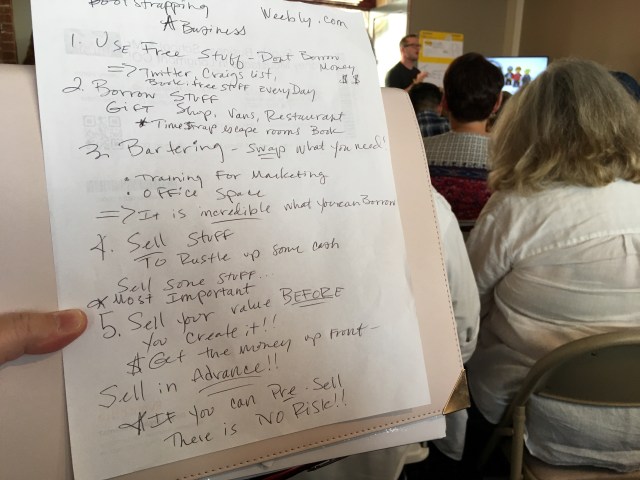 Bootstrapping
A Business
Weebly.com
1. Use Free Stuff - Dont Borrow
Money
=> Twitter, Craigs list,
$$
Barter. free stuff EveryDay
2. Borrow Stuff
Gift Shop, Vans, Restaurant
* Time Strap escape rooms Book
3. Bartering - Swap what you need!
• Training For Marketing
• Office Space
=> It is incredible what you can Borrow
4. Sell Stuff
To Rustle up some cash
Sell Some Stuff...
* Most Important
5. Sell your value BEFORE
you create it!!
$ Get the money up Front -
Sell in Advance!!
* If you can Pre-Sell
There is No Risk!!